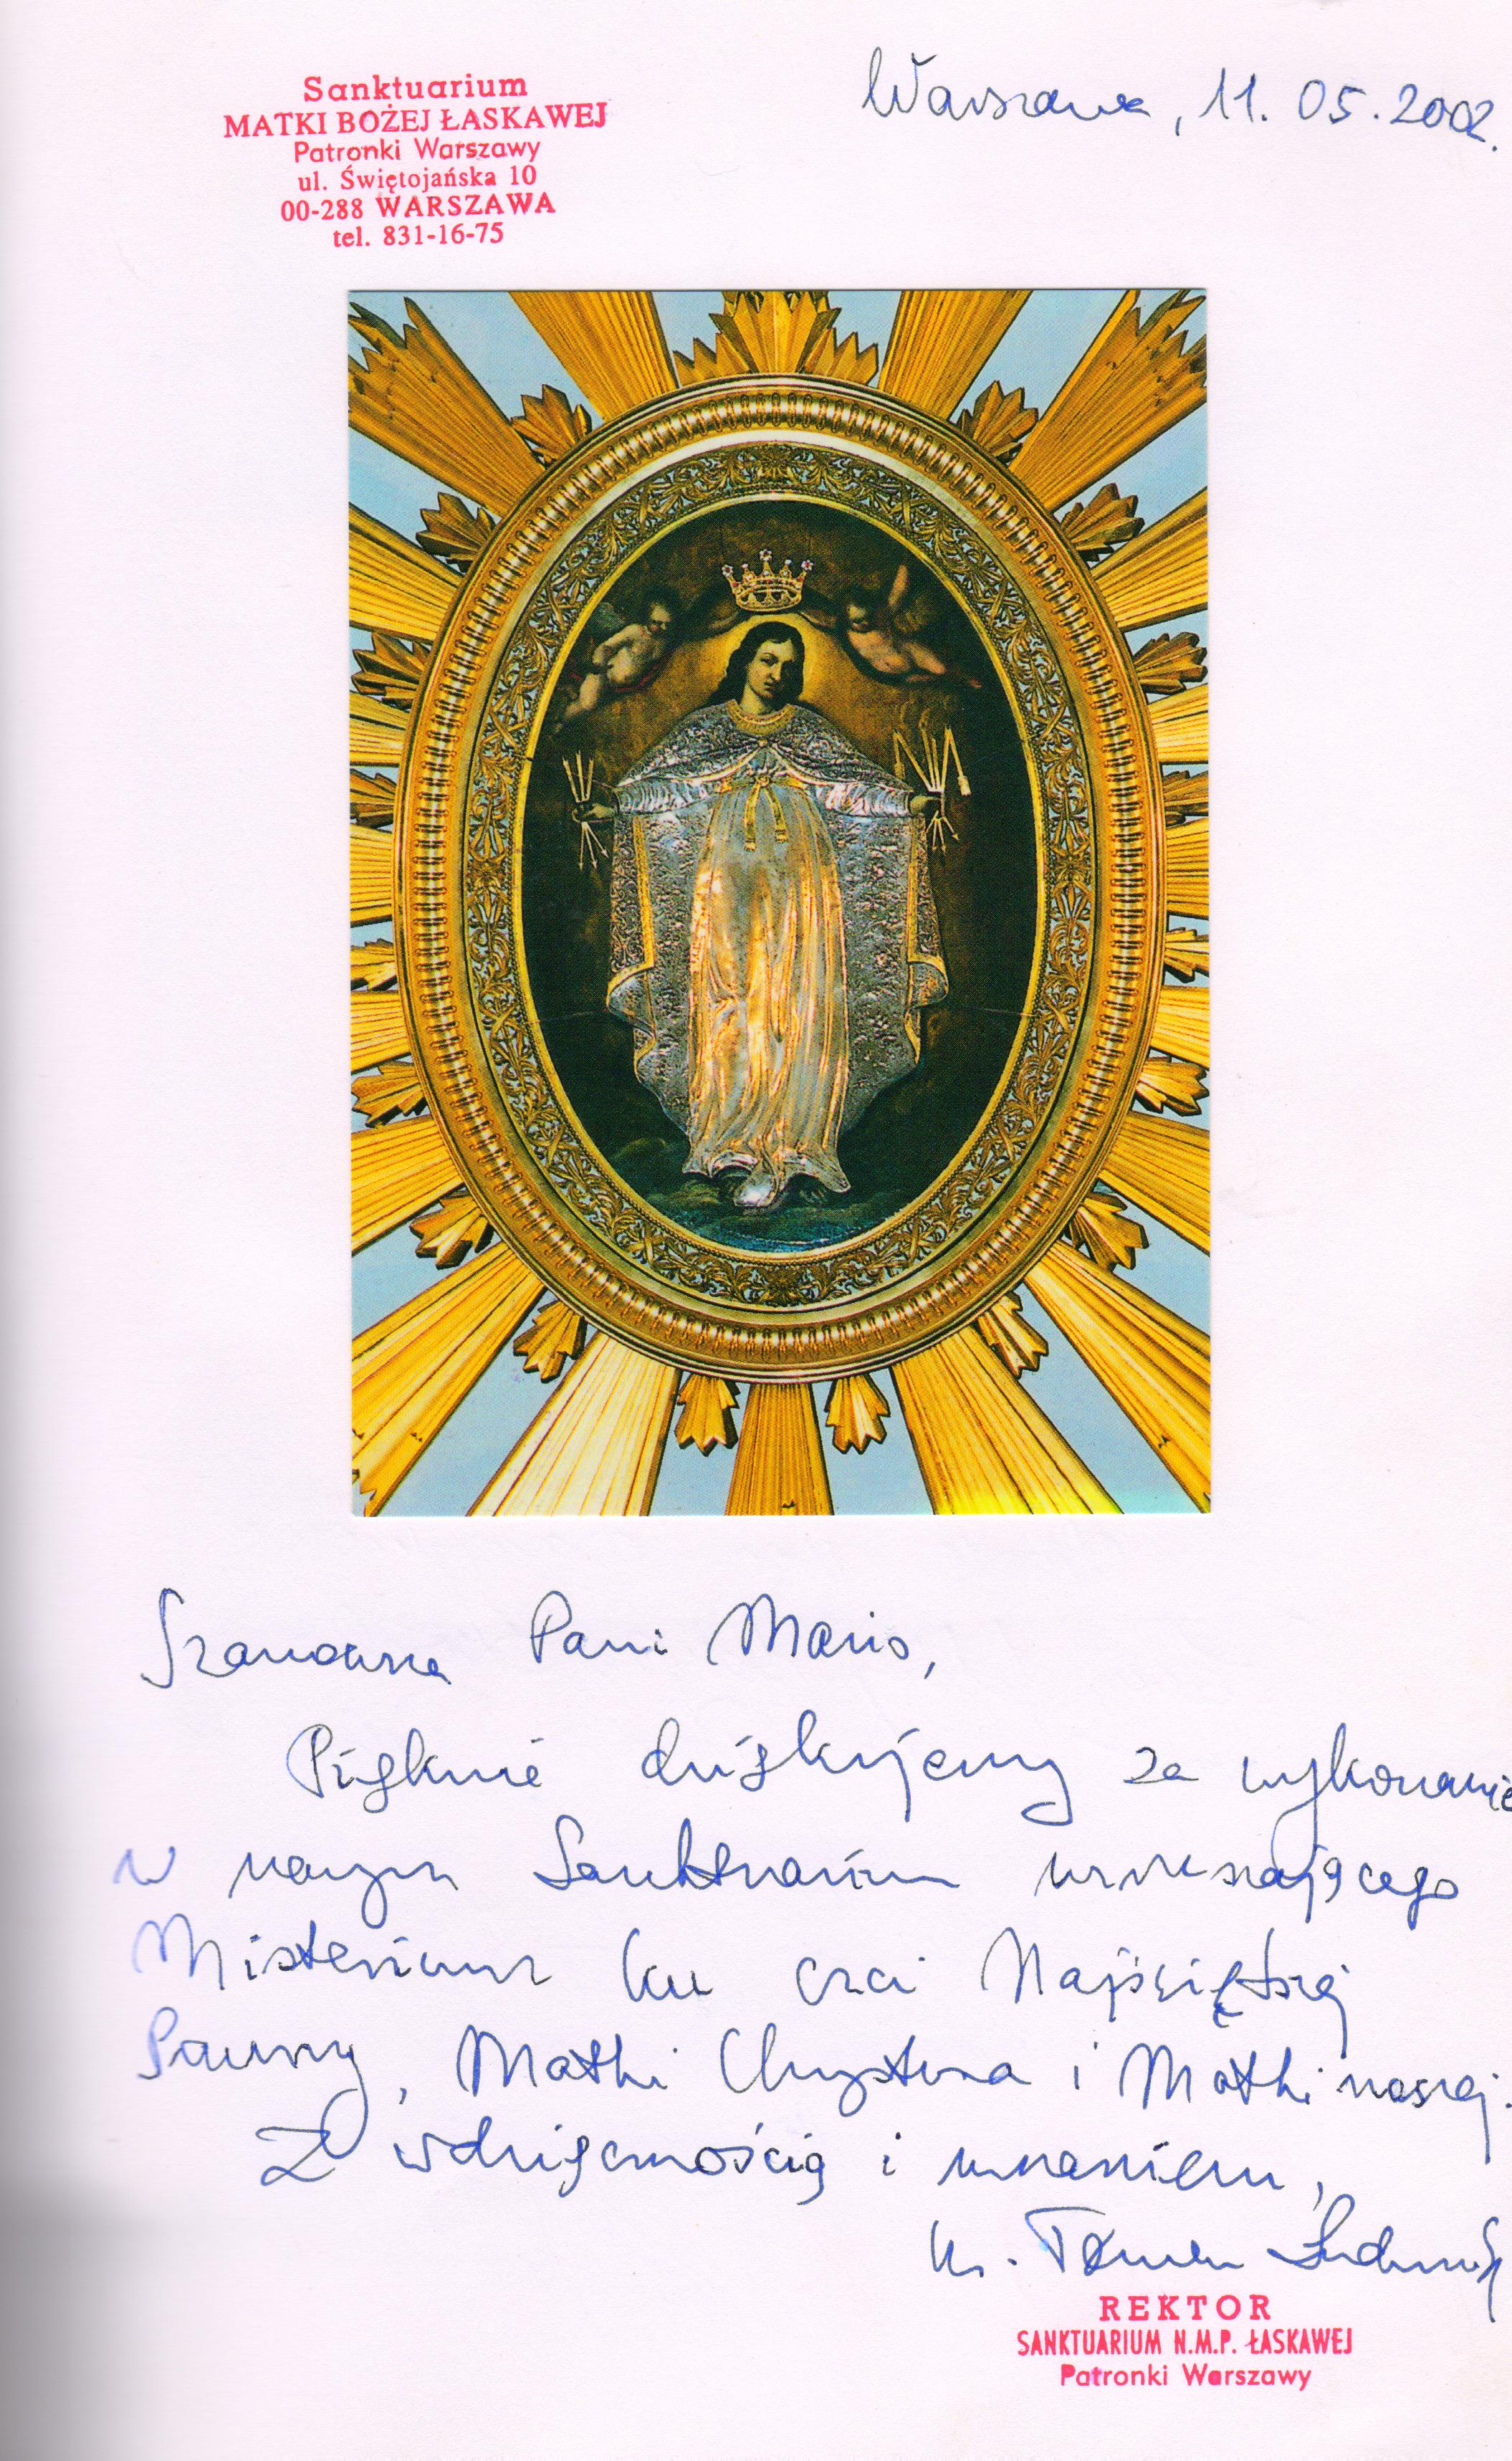 Sanktuarium
MATKI BOŻEJ ŁASKAWEJ
Patronki Warszawy
ul. Świętojańska 10
00-288 WARSZAWA
tel. 831-16-75
Warszawa, 11. 05. 2002.
Szanowna Pani Mario,
Pięknie dziękujemy za wykonanie
w naszym Sanktuarium wzruszającego
Misterium ku czci Najświętszej
Panny, Matki Chrystusa i Matki naszej.
Z wdzięcznością i uznaniem,
ks.
REKTOR
SANKTUARIUM N.M.P. ŁASKAWEJ
Patronki Warszawy